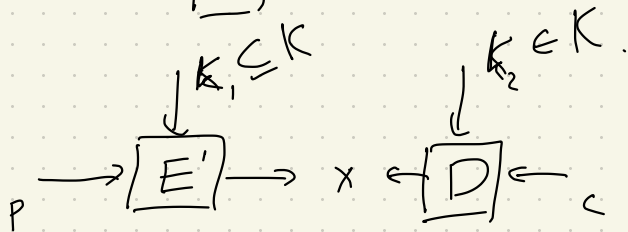 K₁ ⊆ K K₂ ∈ K.
P → E' → X ← D ← C